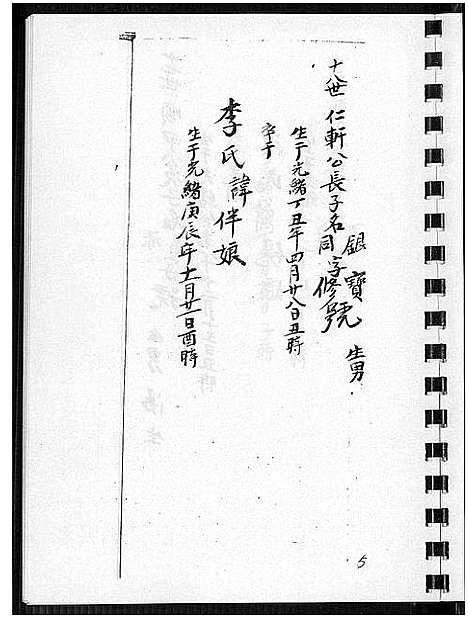 十世 仁軒公長子名同字修號
銀寶
生男
生于光緒丁丑年四月廿八日丑時
卒于
李氏諱伴娘
生于光緒庚辰年十一月廿一日酉時
5